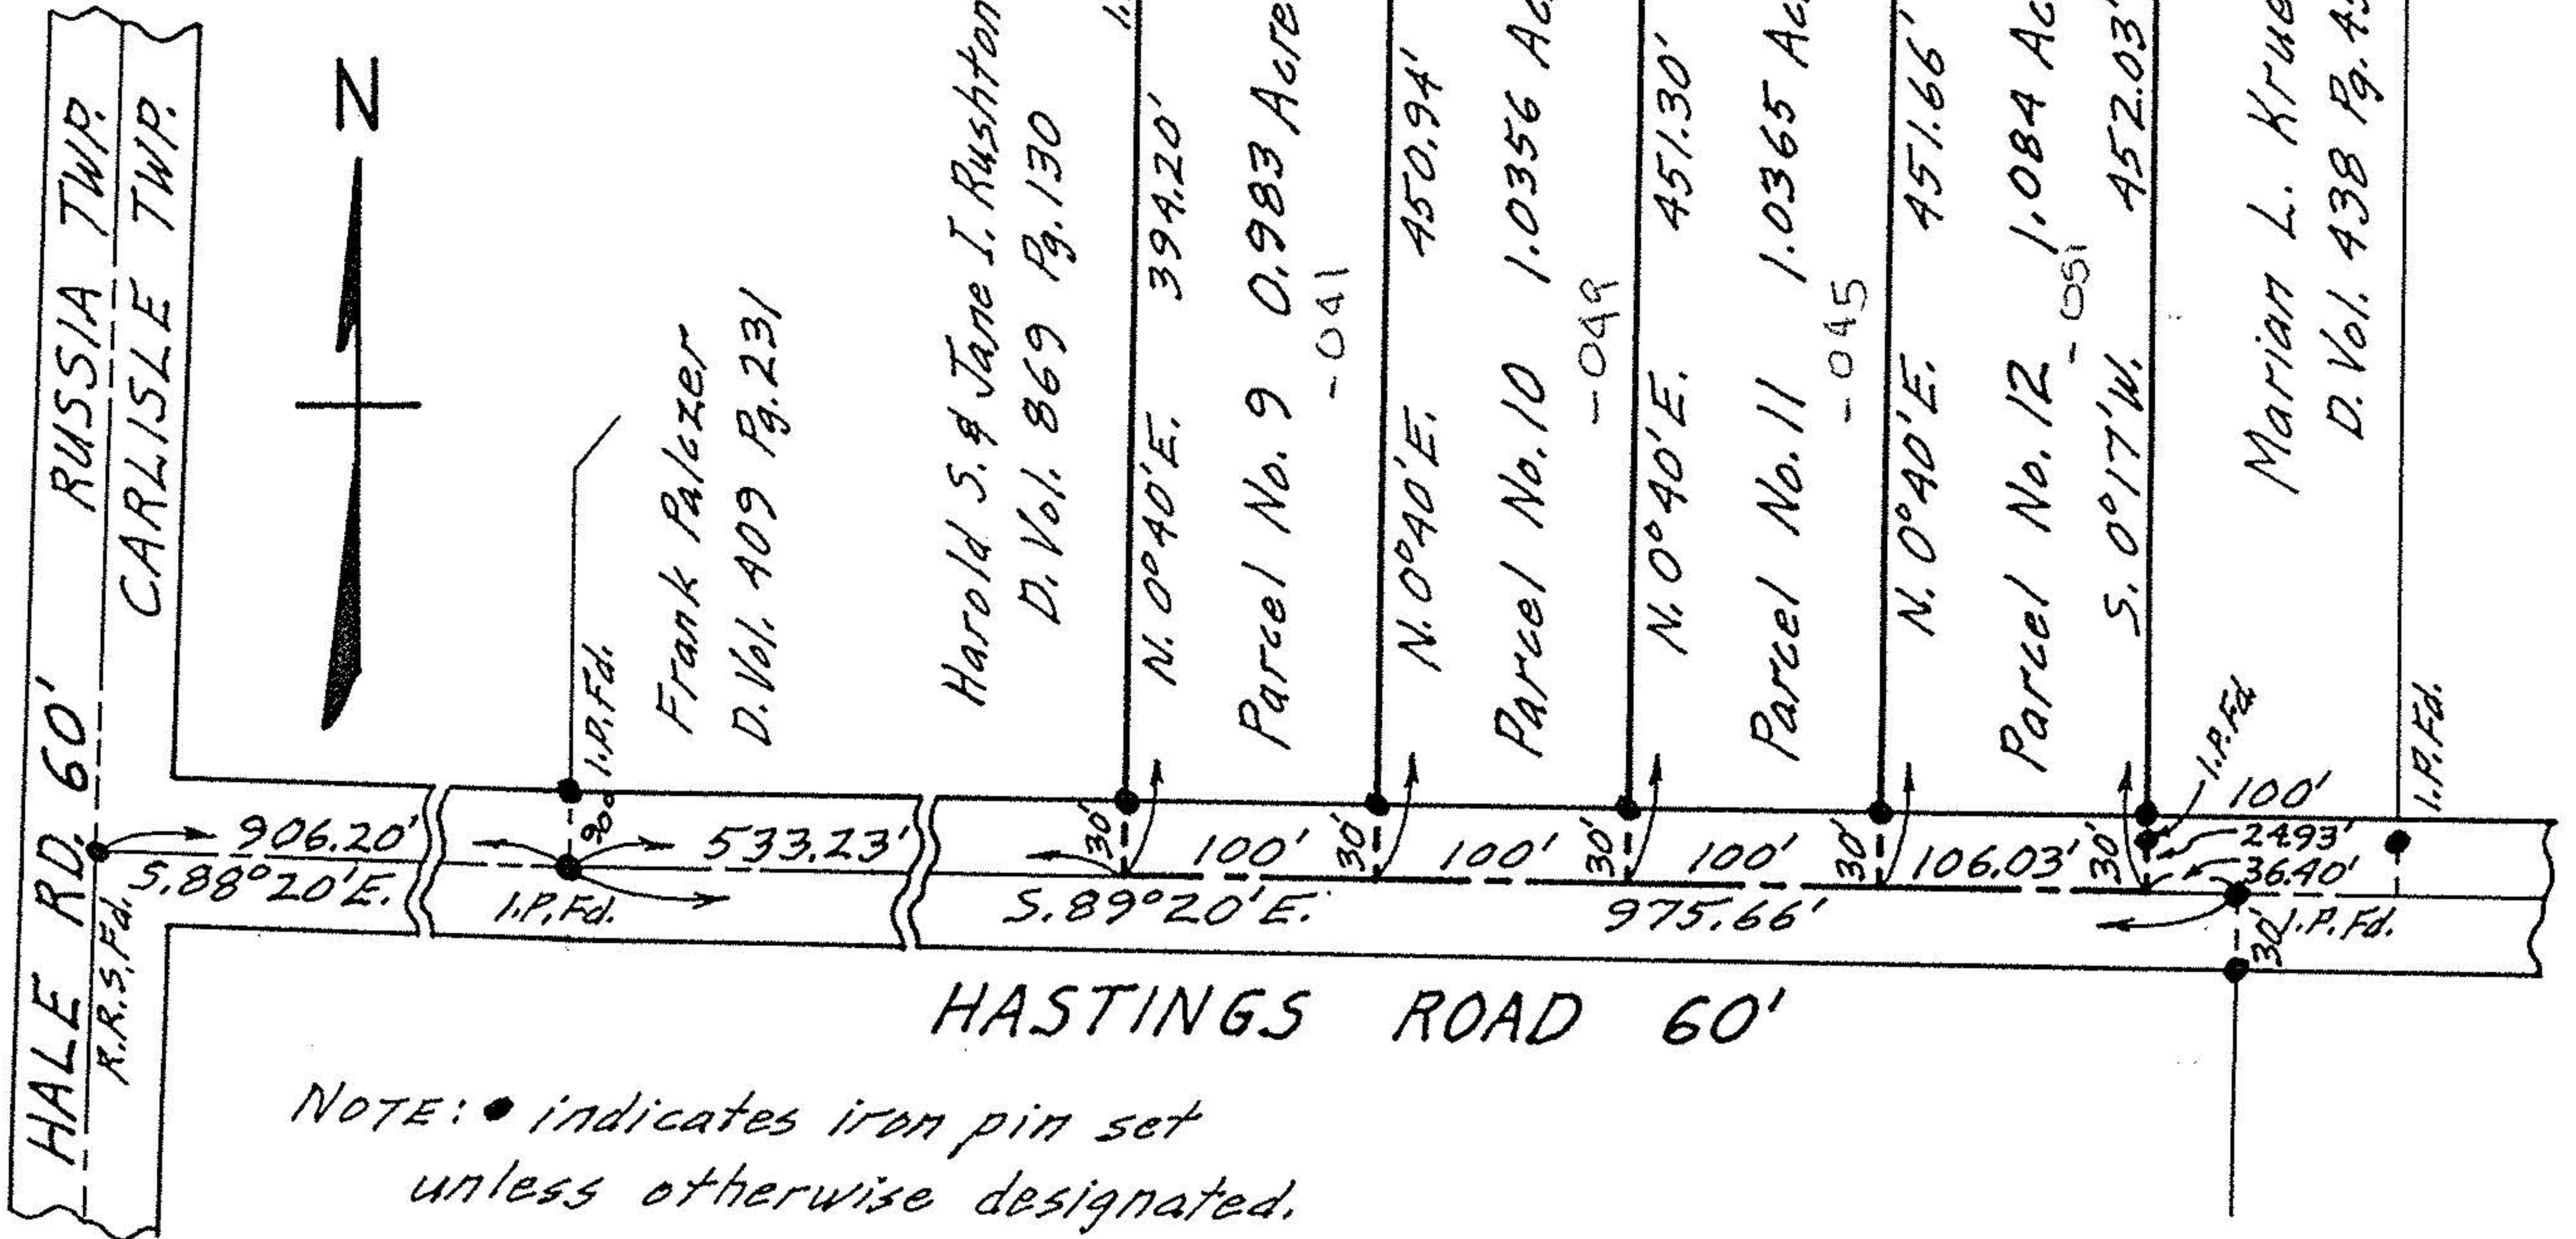 RUSSIA TWP.
CARLISLE TWP.
HALE RD. 60'
R.R.S. Fd.
N
906.20'
S.88°20'E.
I.P.Fd.
I.P.Fd.
Frank Palczer
D. Vol. 409 Pg. 231
533.23'
Harold S. & Jane I. Rushton
D. Vol. 869 Pg. 130
N. 0°40'E. 394.20'
Parcel No. 9 0.983 Acre
-041
N. 0°40'E. 450.94'
Parcel No. 10 1.0356
-049
N. 0°40'E. 451.30'
Parcel No. 11 1.0365
-045
N. 0°40'E. 451.66'
Parcel No. 12 1.084
-051
S. 0°17'W. 452.03'
Marian L.
D. Vol. 438 Pg.
I.P.Fd.
I.P.Fd
30'
100'
30'
100'
30'
100'
30'
106.03'
30'
100'
24.93'
36.40'
S.89°20'E.
975.66'
I.P.Fd.
30'
HASTINGS ROAD 60'
NOTE: • indicates iron pin set
unless otherwise designated.